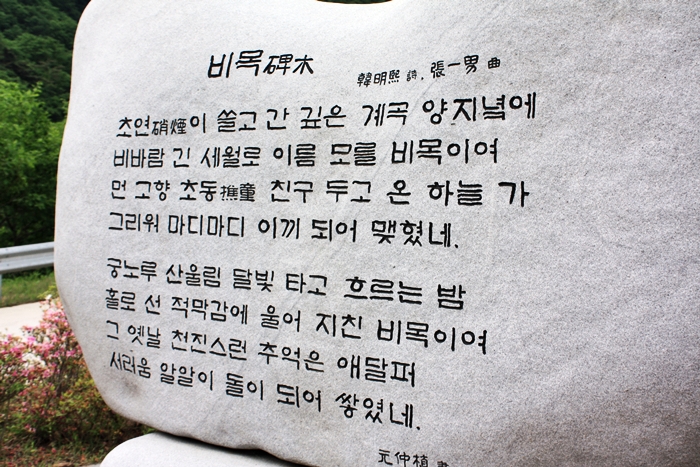 비목碑木
韓明熙 詩, 張一男 曲
초연硝煙이 쓸고 간 깊은 계곡 양지녘에
비바람 긴 세월로 이름 모를 비목이여
먼 고향 초동樵童 친구 두고 온 하늘 가
그리워 마디마디 이끼 되어 맺혔네.
궁노루 산울림 달빛 타고 흐르는 밤
홀로 선 적막감에 울어 지친 비목이여
그 옛날 천진스런 추억은 애달퍼
서러움 알알이 돌이 되어 쌓였네.
元仲植